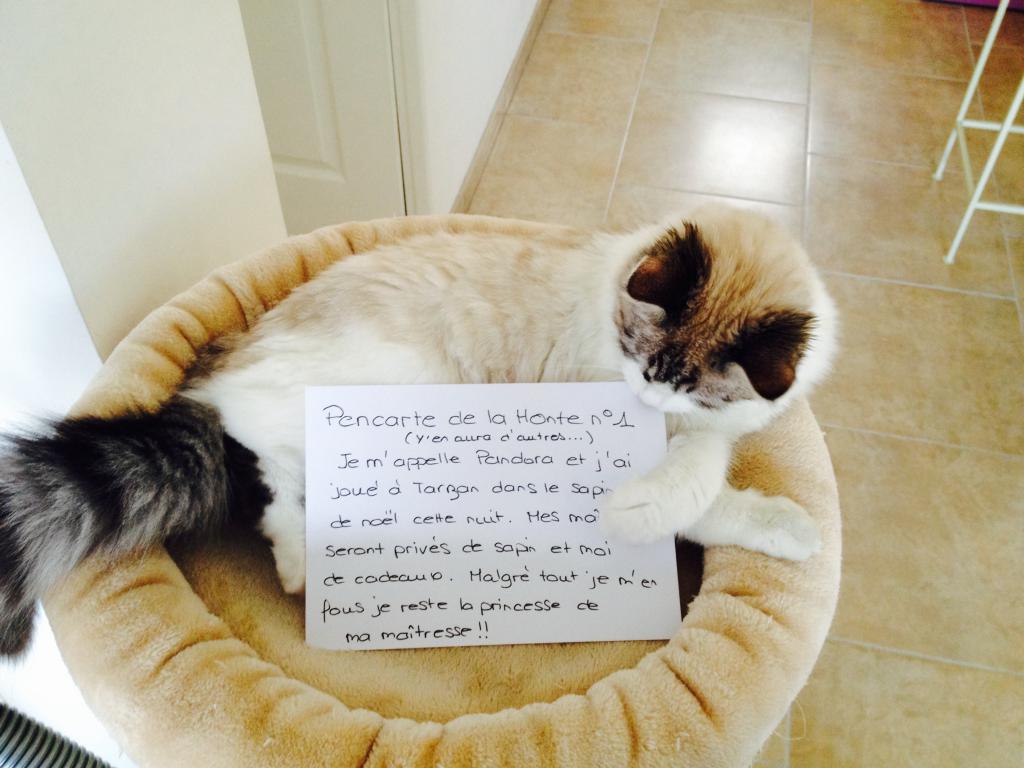 Pencarte de la Honte n°1
(y'en aura d'autres...)
Je m'appelle Pandora et j'ai
joué à Tarzan dans le sapin
de noël cette nuit. Mes maî
seront privés de sapin et moi
de cadeaux. Malgré tout je m'en
fous je reste la princesse de
ma maîtresse !!